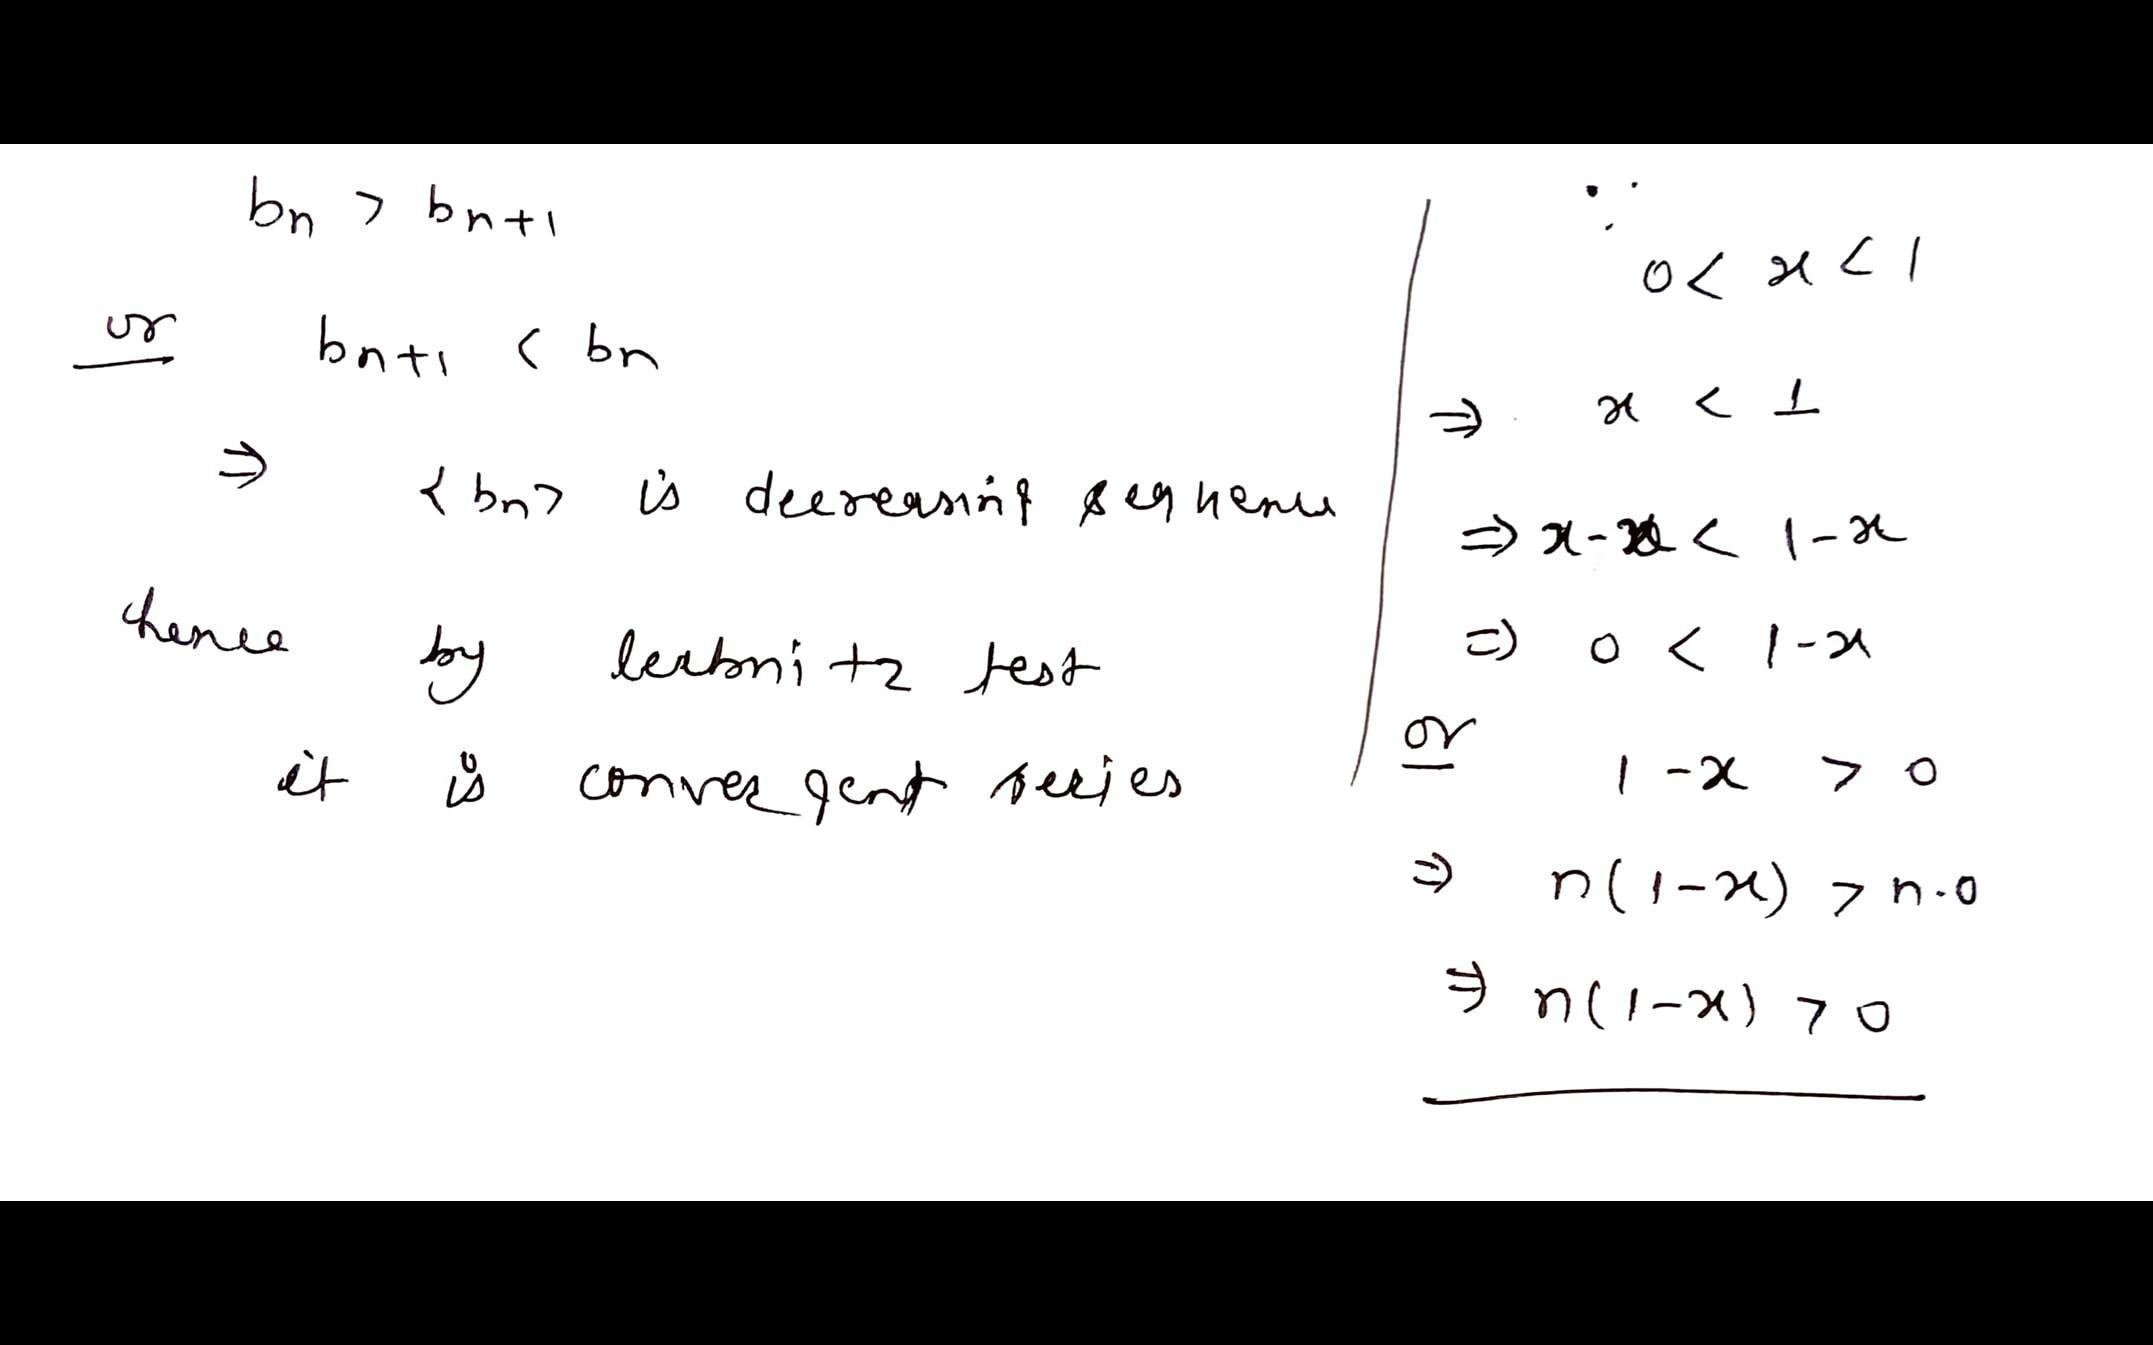 bn > bn+1
or bn+1 < bn
⇒ <bn> is decreasing sequence
hence by leibnitz test
it is convergent series
∵ 0 < x < 1
⇒ x < 1
⇒ x - x < 1 - x
⇒ 0 < 1 - x
or 1 - x > 0
⇒ n(1 - x) > n.0
⇒ n(1 - x) > 0